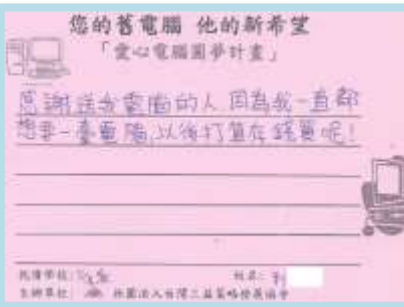 您的舊電腦 他的新希望
「愛心電腦圓夢計畫」
感謝送我電腦的人 因為我一直都
想要一臺電腦,以後打算存錢買呢!
姓名:
主辦單位: 社團法人台灣三益策略發展協會